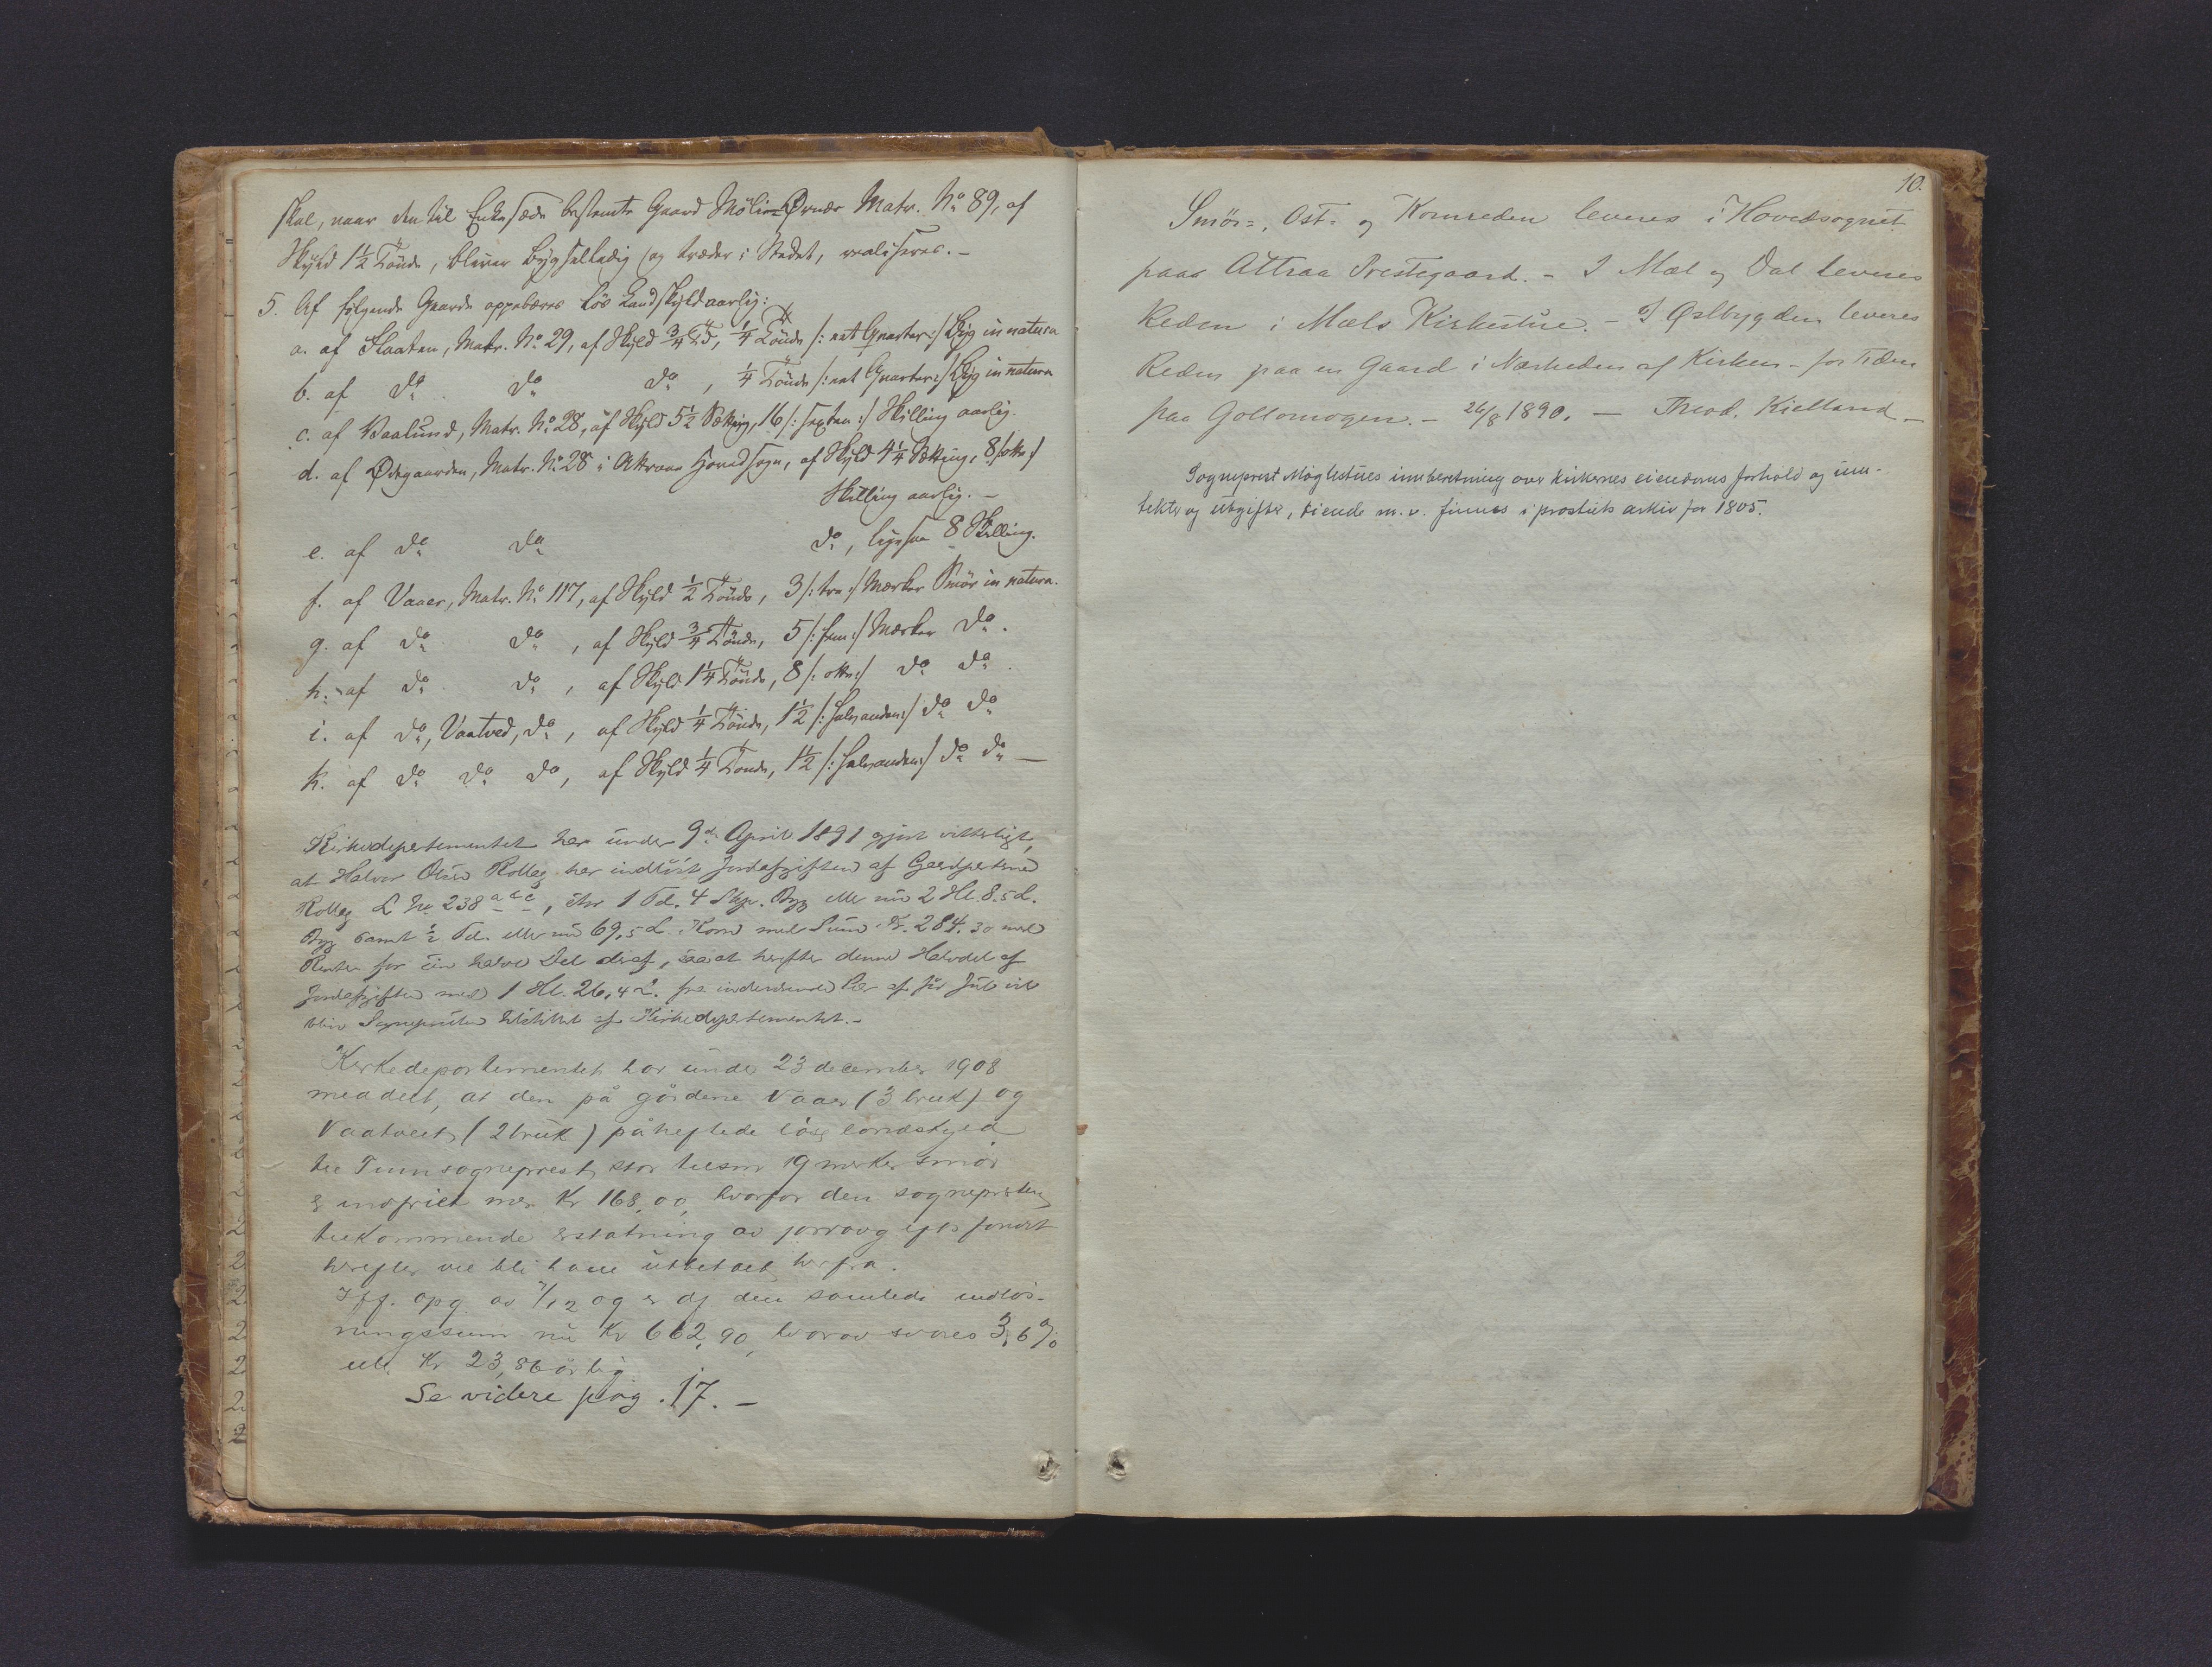 skal, naar den til Enkesæde bestemte Gaard Møli-Ørnæs Matr. No 89, af
Skyld 1½ Tønde, bliver bygselledig og træder i Stedet, realiseres. -
5. Af følgende Gaarde oppebæres løs Landskyld aarlig:
a. af Flaaten, Matr. No 29, af Skyld ¾ Td, ¼ Tønde /: eet Qvarter :/ Byg in natura
b. af do do do, ¼ Tønde /: eet Qvarter :/ Byg in natura
c. af Baalund, Matr. No 28, af Skyld 5½ Sætting, 16 /: sexten :/ Skilling aarlig.
d. af Ødegaarden, Matr. No 28 i Attraae Hovedsogn, af Skyld 4¼ Sætting, 8 /: otte :/
Skilling aarlig. -
e. af do do do, ligesaa 8 Skilling.
f. af Vaaer, Matr. No 117, af Skyld ½ Tønde, 3 /: tre :/ Mærker Smör in natura.
g. af do do, af Skyld ¾ Tønde, 5 /: fem :/ Mærker do.
h. af do do, af Skyld 1¼ Tønde, 8 /: otte :/ do do.
i. af do, Vaatved, do, af Skyld ¼ Tønde, 1½ /: halvanden :/ do do
k. af do do do, af Skyld ¼ Tønde, 1½ /: halvanden :/ do do —
Kirkedepartementet har under 9de April 1891 gjort vitterligt,
at Halvor Olsen Rollag har indløst Jordafgiften af Gaardparterne
Rollag L No 238 a b c, stor 1 Td. 4 Skp. Byg eller nu 2 Hl. 8.5 L.
Byg samt ½ Td. eller nu 69,5 L Korn med Sum Kr. 284.30 med
Renter for en halv Del deraf, saa at herefter denne Halvdel af
Jordafgiften med 1 Hl. 26,4 L. fra indeværende Aar af før Jul vil
blive Sognepresten tilstillet af Kirkedepartementet. -
Kirkedepartementet har under 23 december 1908
meddelt, at den på gårdene Vaaer (3 bruk) og
Vaatveit (2 bruk) påheftede løse landskyld
til Tinn sogneprest, stor tilsm 19 merker smør
er indfriet med Kr 168,00, hvorfor den sognepresten
tilkommende erstatning av jordavgiftsfondet
herefter vil bli ham utbetalt herfra.
Iflg. opg. av 7/12 og er af den samlede indløs-
ningssum nu Kr 662,90, hvorav svares 3,6 %
ell. Kr 23,86 årlig.
Se videre pag. 17. -
10.
Smör-, Ost- og Kornreden leveres i Hovedsognet
paa Attraa Prestegaard. - I Mæl og Dal leveres
Reden i Mæls Kirkestue. - I Øslbygden leveres
Reden paa en Gaard i Nærheden af Kirken - for Tiden
paa Gollomogen. - 26/8 1890. — Theod. Kielland -
Sogneprest Møglestues innberetning over kirkernes eiendoms forhold og inn-
tekter og utgifter, tiende m. v. finnes i prostiets arkiv for 1805.